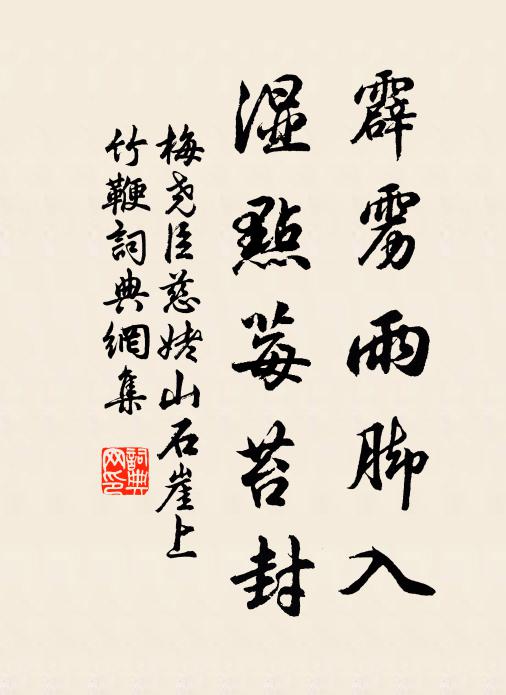 霹雳雨脚入
湿點莓苔封
梅尧臣慈姥山石崖上
竹鞭詞典網集
詞典
网印